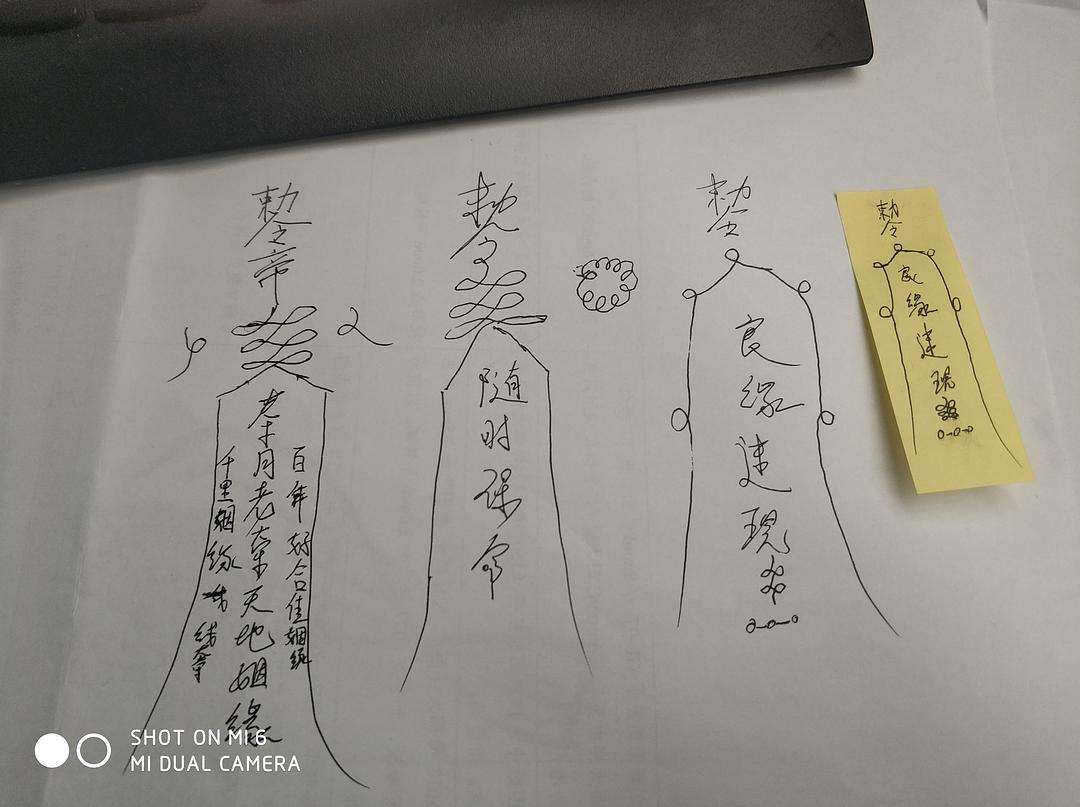 敕令
帝
千里姻缘
月老牵天地姻缘
百年好合佳姻缘
敕令
随时保命
敕令
良缘速现
敕令
良缘速现
SHOT ON MI 6
MI DUAL CAMERA